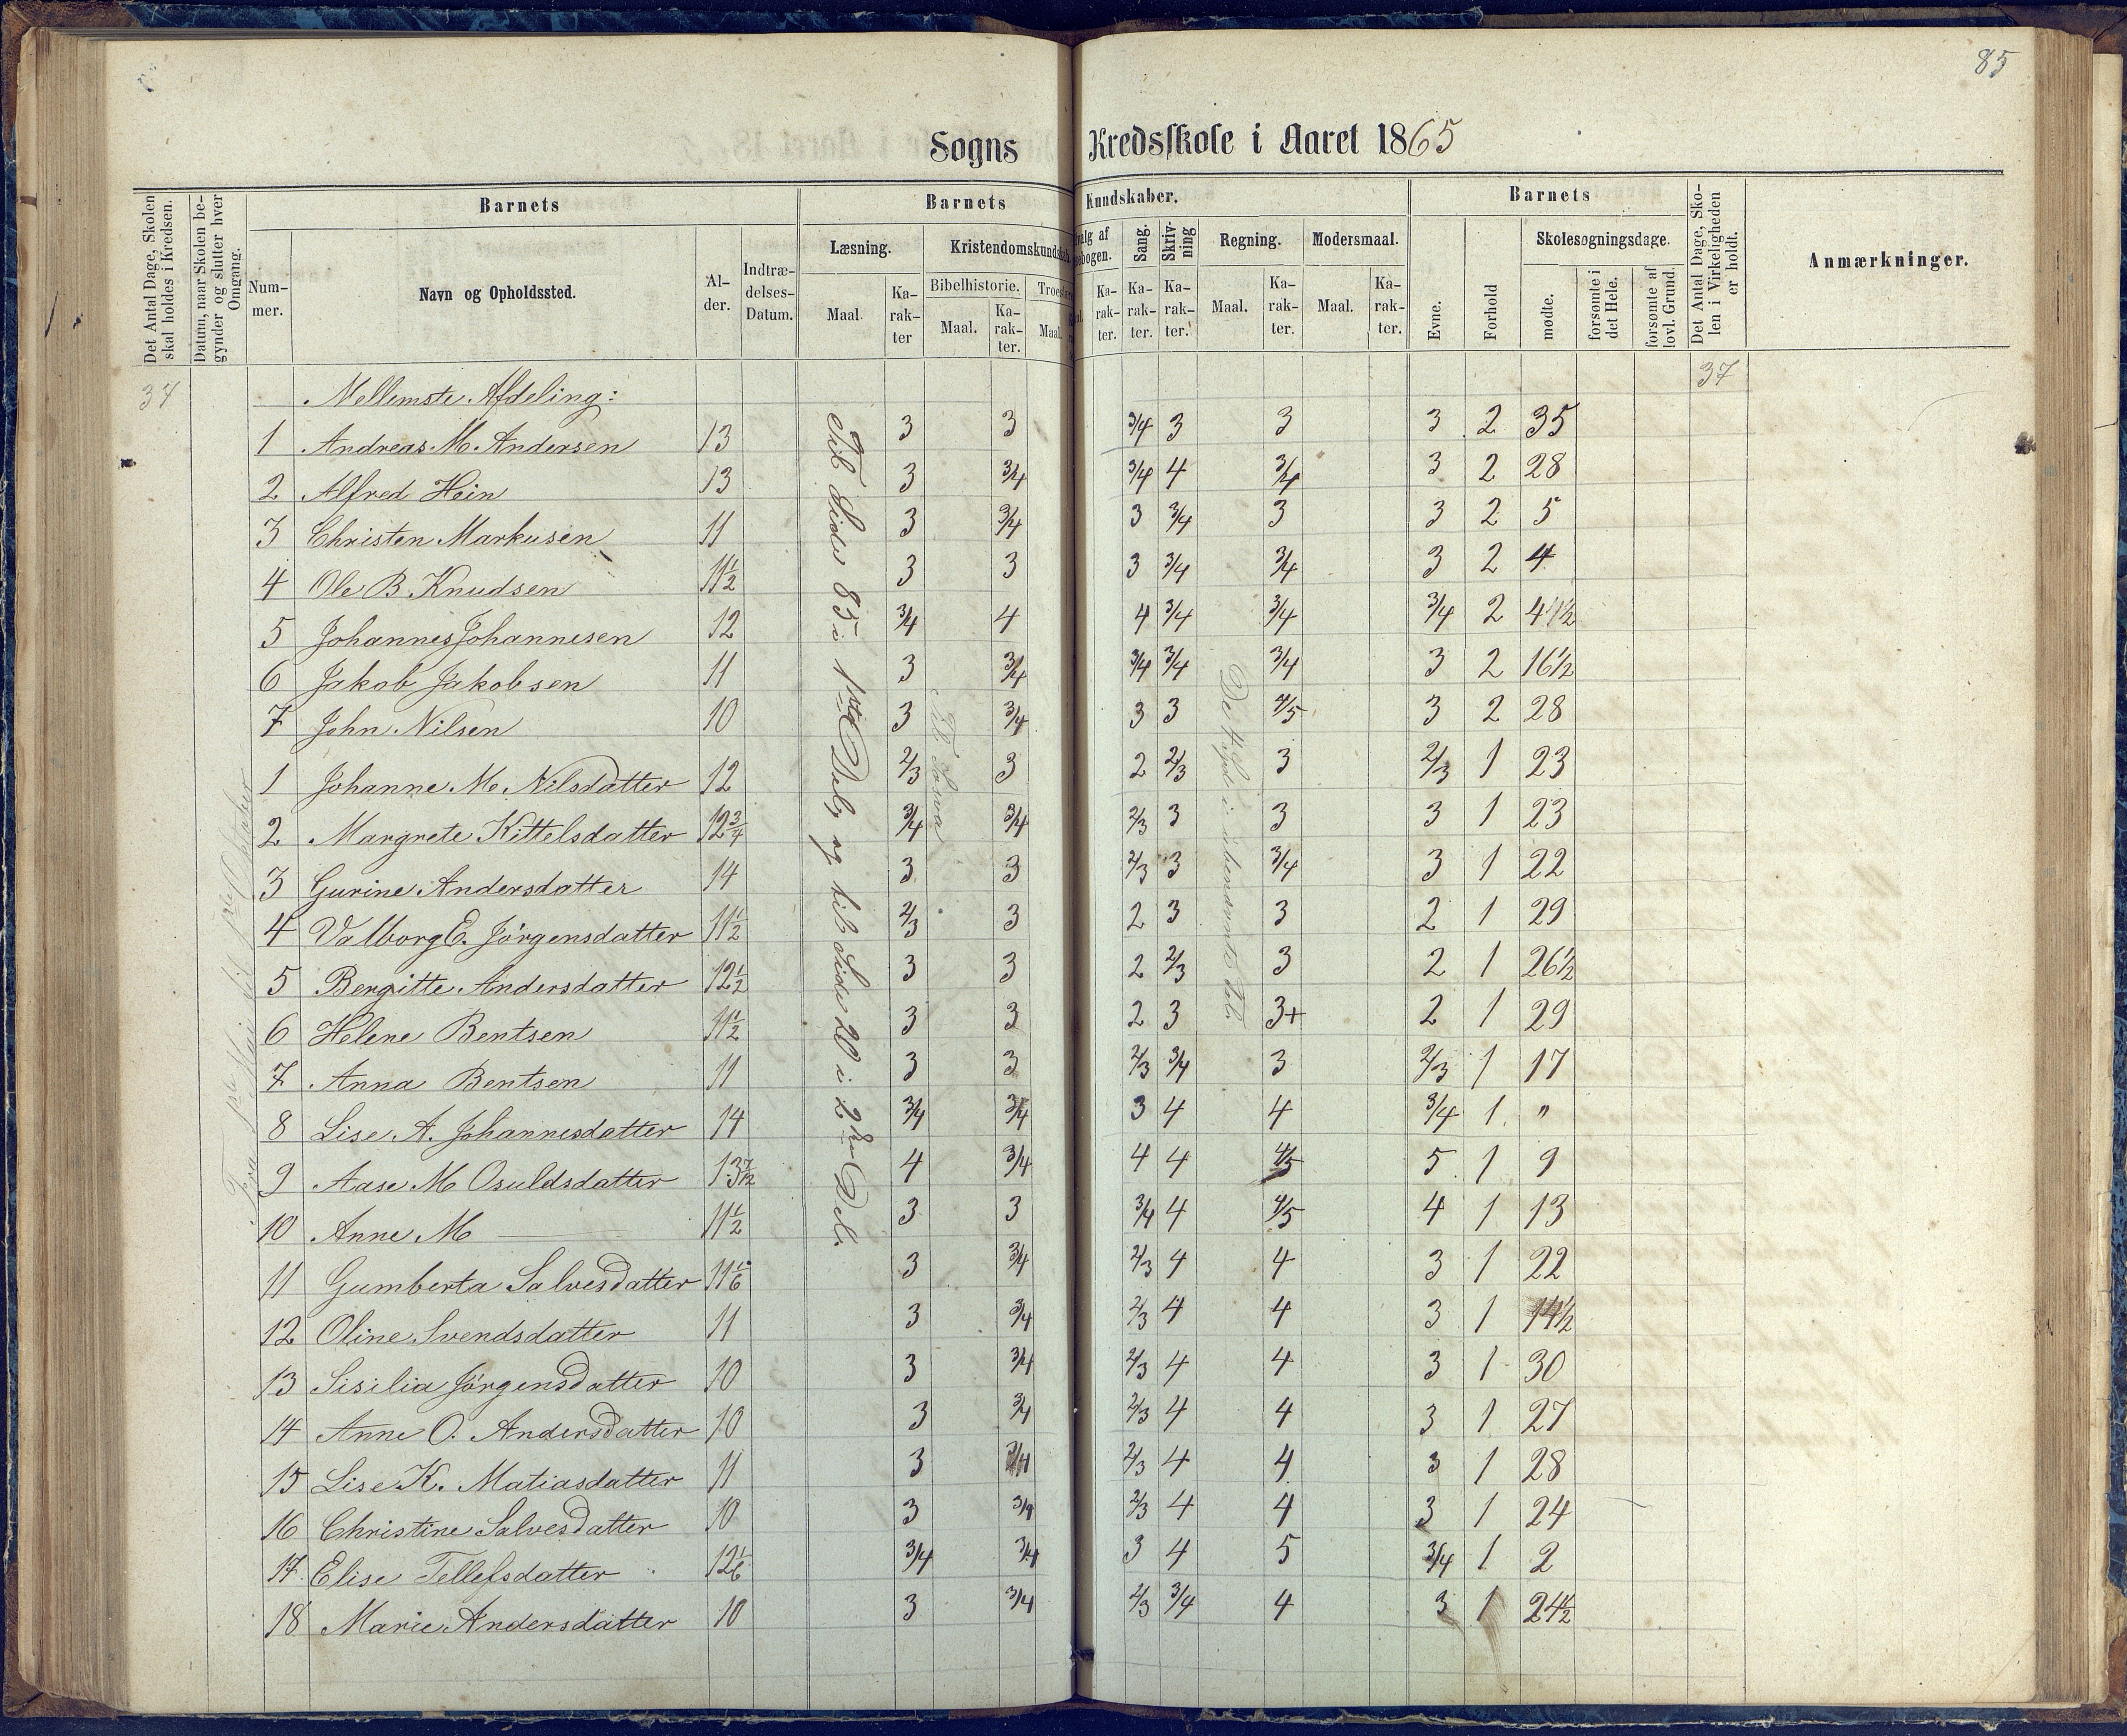 85
Sogns Kredsskole i Aaret 1865
Det Antal Dage, Skolen skal holdes i Kredsen.
Datum, naar Skolen begynder og slutter hver Omgang.
Barnets
Nummer.
Navn og Opholdssted.
Alder.
Indtrædelses-Datum.
Barnets Kundskaber.
Læsning.
Maal.
Karakter
Kristendomskundskab.
Bibelhistorie.
Maal.
Karakter.
Troes
Maal.
valg af
ebogen.
Karakter.
Sang.
Karakter.
Skrivning
Karakter.
Regning.
Maal.
Karakter.
Modersmaal.
Maal.
Karakter.
Barnets
Evne.
Forhold
Skolesøgningsdage.
mødte.
forsømte i det Hele.
forsømte af lovl. Grund.
Det Antal Dage, Skolen i Virkeligheden er holdt.
Anmærkninger.
37 Mellemste Afdeling: 37
1 Andreas M. Andersen 13 3 3 3/4 3 3 3 2 35
2 Alfred Hein 13 3 3/4 3/4 4 3/4 3 2 28
3 Christen Markusen 11 3 3/4 3 3/4 3 3 2 5
4 Ole B. Knudsen 11½ 3 3 3 3/4 3/4 3 2 4
5 Johannes Johannesen 12 3/4 4 4 3/4 3/4 3/4 2
6 Jakob Jakobsen 11 3 3/4 3/4 3/4 3/4 3 2 16½
7 John Nilsen 10 3 3/4 3 3 4/5 3 2 28
1 Johanne M. Nilsdatter 12 2/3 3 2 2/3 3 2/3 1 23
2 Margrete Kittelsdatter 12¾ 3/4 3/4 2/3 3 3 3 1 23
3 Gurine Andersdatter 14 3 3 2/3 3 3/4 3 1 22
4 Valborg E. Jörgensdatter 11½ 2/3 3 2 3 3 2 1 29
5 Bergitte Andersdatter 12½ 3 3 2 2/3 3 2 1 26½
6 Helene Bentsen 11½ 3 3 2 3 3+ 2 1 29
7 Anna Bentsen 11 3 3 2/3 3/4 3 2/3 1 17
8 Lise A. Johannesdatter 14 3/4 3/4 3 4 4 3/4 1 "
9 Aase M Osuldsdatter 13 7/12 4 3/4 4 4 4/5 5 1 9
10 Anne M — 11½ 3 3 3/4 4 4/5 4 1 13
11 Gumberta Salvesdatter 11 1/6 3 3/4 2/3 4 4 3 1 22
12 Oline Svendsdatter 11 3 3/4 2/3 4 4 3 1 14½
13 Sisilia Jörgensdatter 10 3 3/4 2/3 4 4 3 1 30
14 Anne O. Andersdatter 10 3 3/4 2/3 4 4 3 1 27
15 Lise K. Matiasdatter 11 3 3/4 2/3 4 4 3 1 28
16 Christine Salvesdatter 10 3 3/4 2/3 4 4 3 1 24
17 Elise Tellefsdatter 12 1/6 3/4 3/4 3 4 5 3/4 1 2
18 Marie Andersdatter 10 3 3/4 2/3 3/4 4 3 1 24½
Til Side 85 i 1ste Del, og til Side 20 i 2den Del.
De 4 i